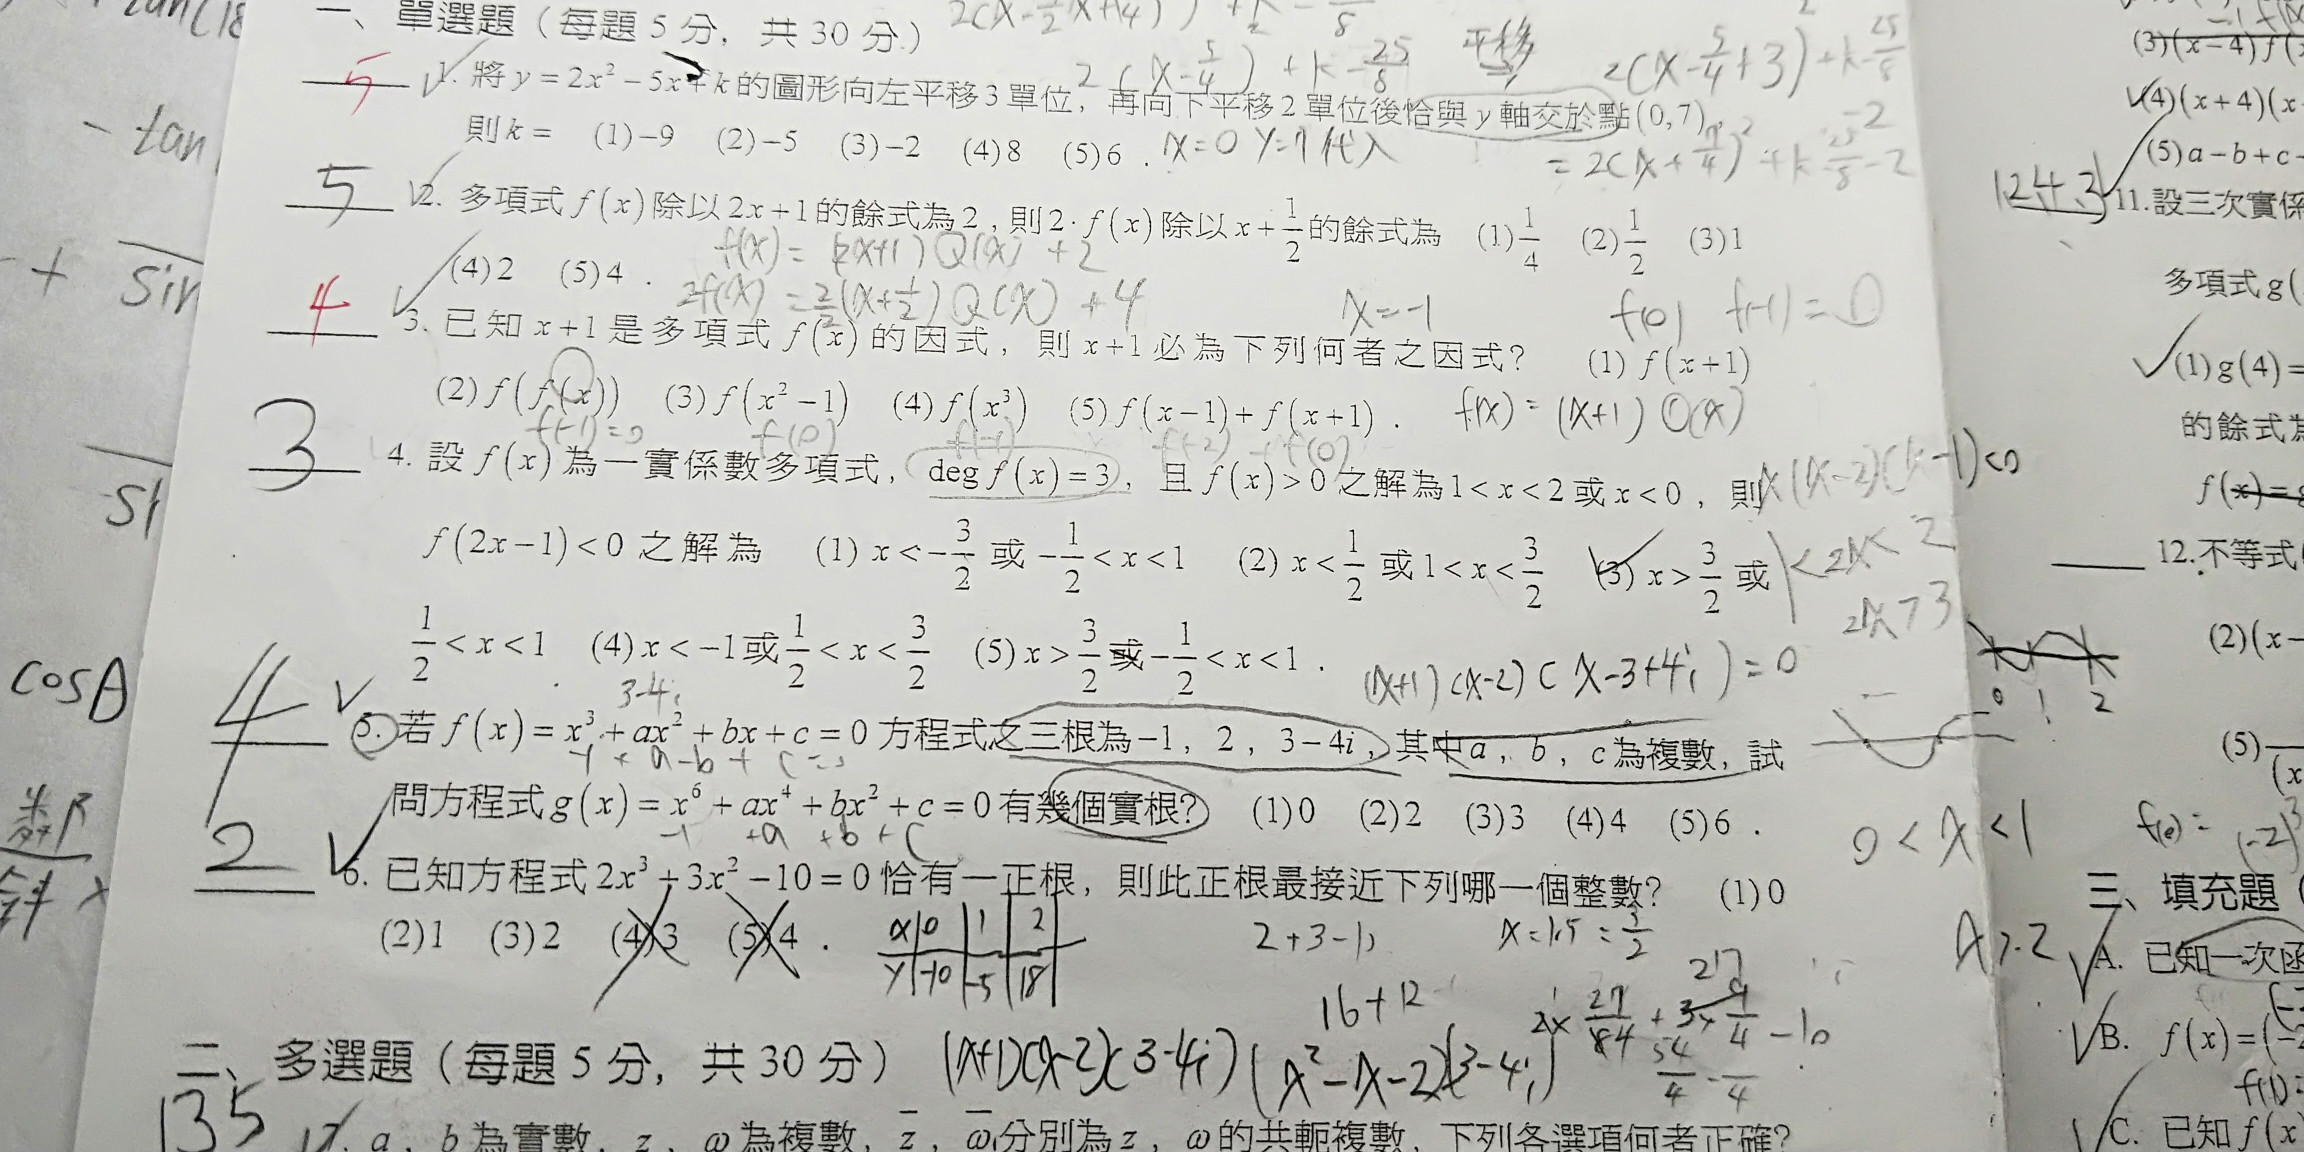 一、單選題（每題 5 分，共 30 分）
5 1. 將 y = 2x² − 5x + k 的圖形向左平移 3 單位，再向下平移 2 單位後恰與 y 軸交於點 (0,7)，
則 k = (1) −9 (2) −5 (3) −2 (4) 8 (5) 6 . x=0 y=7 代入
平移
5 2. 多項式 f(x) 除以 2x+1 的餘式為 2，則 2·f(x) 除以 x+1/2 的餘式為 (1) 1/4 (2) 1/2 (3) 1
(4) 2 (5) 4 .
f(x) = (2x+1) Q(x) + 2
4 3. 已知 x+1 是多項式 f(x) 的因式，則 x+1 必為下列何者之因式？ (1) f(x+1)
x=-1 f(0) f(-1)=0
(2) f(f(x)) (3) f(x²−1) (4) f(x³) (5) f(x−1)+f(x+1) .
f(-1)=0 f(0) f(-1) f(-2) f(0)
3 4. 設 f(x) 為一實係數多項式，deg f(x)=3，且 f(x)>0 之解為 1<x<2 或 x<0，則
x(x-2)(x-1)<0
f(2x−1)<0 之解為 (1) x<−3/2 或 −1/2<x<1 (2) x<1/2 或 1<x<3/2 (3) x>3/2 或
1<2x<2
2x>3
1/2<x<1 (4) x<−1 或 1/2<x<3/2 (5) x>3/2 或 −1/2<x<1 .
3-4i (x+1)(x-2)(x-3+4i)=0
4 5. 若 f(x) = x³ + ax² + bx + c = 0 方程式之三根為 −1，2，3−4i，其中 a，b，c 為複數，試
問方程式 g(x) = x⁶ + ax⁴ + bx² + c = 0 有幾個實根？ (1) 0 (2) 2 (3) 3 (4) 4 (5) 6 .
-1 +a +b +c
0<x<1
2 6. 已知方程式 2x³ + 3x² − 10 = 0 恰有一正根，則此正根最接近下列哪一個整數？ (1) 0
(2) 1 (3) 2 (4) 3 (5) 4 .
x 0 1 2
y -10 -5 18
x=1.5=3/2
16+12
二、多選題（每題 5 分，共 30 分）
(x+1)(x-2)(3-4i) (x²-x-2)(3-4i)
135 7. a，b 為實數，z，ω 為複數，z̄，ω̄ 分別為 z，ω 的共軛複數，下列各選項何者正確？
- tan
+ sin
cosθ
0 1 2
(3) (x−4)f(
(4) (x+4)(x
(5) a−b+c
1243 11. 設三次實係
多項式 g(
(1) g(4)=
的餘式為
12. 不等式
(2) (x−
(5)
三、填充題
A. 已知一次函
B. f(x)=(
C. 已知 f(x